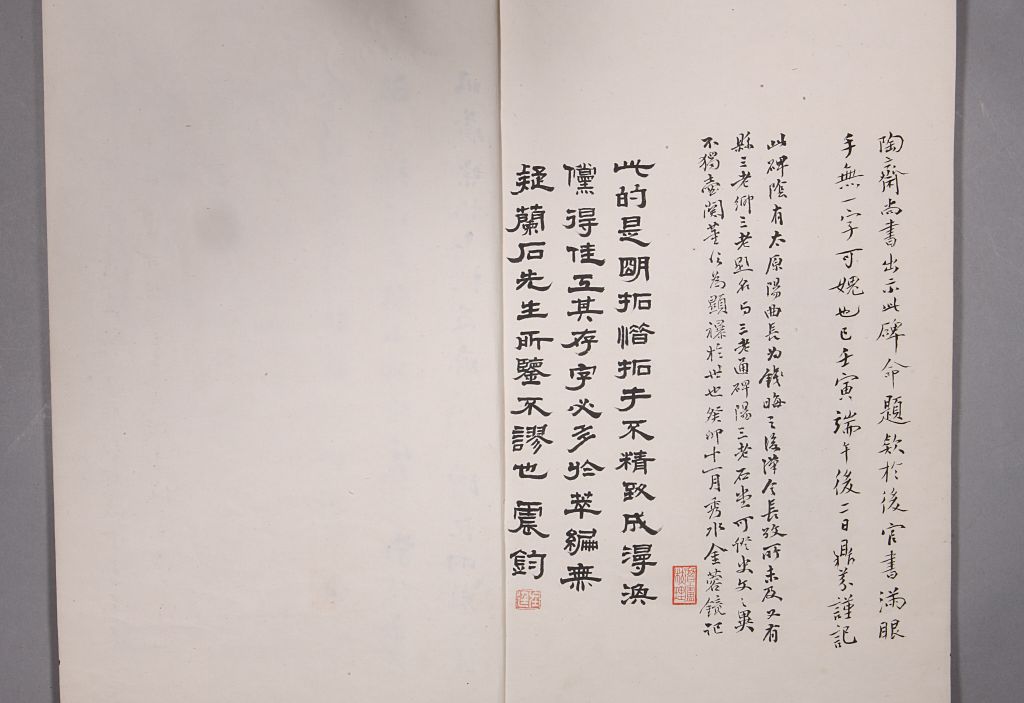 陶齋尚書出示此碑命題款於後官書滿眼
手無一字可媿也已壬寅端午後二日鼎芬謹記
此碑陰有太原陽曲長為錢晦之後漢令長攷所未及又有
縣三老鄉三老題名与三老通碑陽三老石堂可證史文之異
不獨壺關董公為顯襮於世也癸卯十一月秀水金蓉鏡記
此的是明拓惜拓手不精致成漫渙
儻得佳工其存字必多於萃編無
疑蘭石先生所鑒不謬也 震鈞